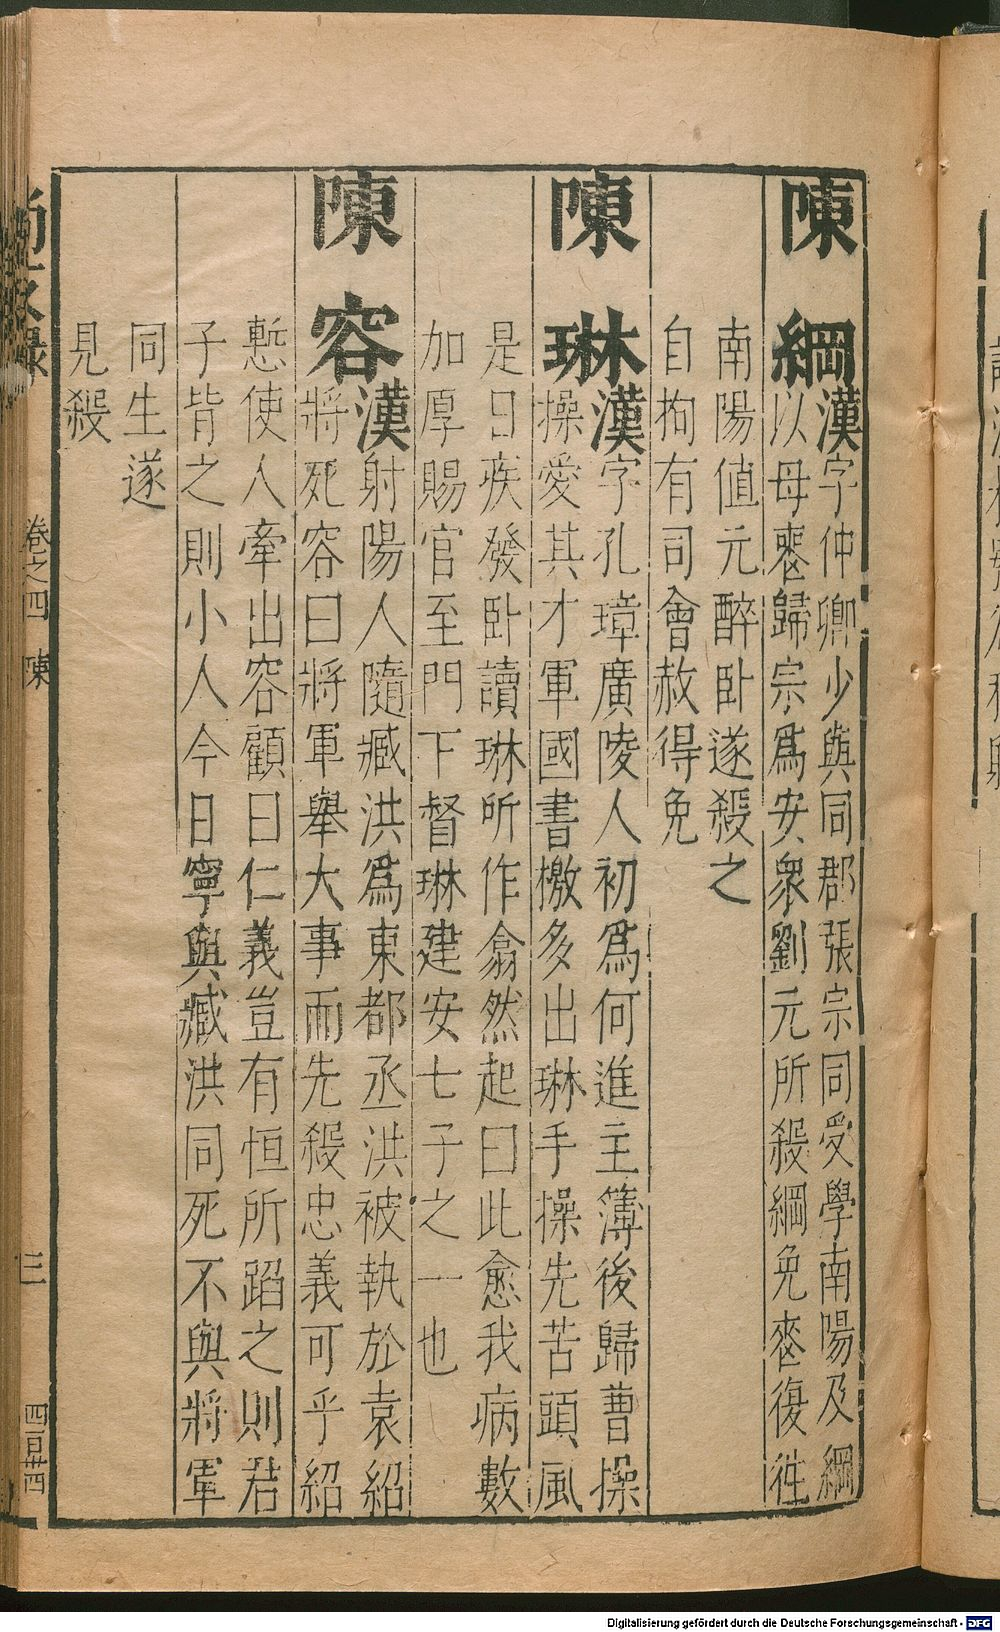 陳綱
漢字仲卿少與同郡張宗同受學南陽及綱
以母喪歸宗爲安衆劉元所殺綱免喪復徃
南陽値元醉卧遂殺之
自拘有司會赦得免
陳琳
漢字孔璋廣陵人初爲何進主簿後歸曹操
操愛其才軍國書檄多出琳手操先苦頭風
是日疾發卧讀琳所作翕然起曰此愈我病數
加厚賜官至門下督琳建安七子之一也
陳容
漢射陽人隨臧洪爲東都丞洪被執於袁紹
將死容曰將軍舉大事而先殺忠義可乎紹
慙使人牽出容顧曰仁義豈有恒所蹈之則君
子背之則小人今日寧與臧洪同死不與將軍
同生遂
見殺
卷之四 陳
三
四百廿四
Digitalisierung gefördert durch die Deutsche Forschungsgemeinschaft - DFG